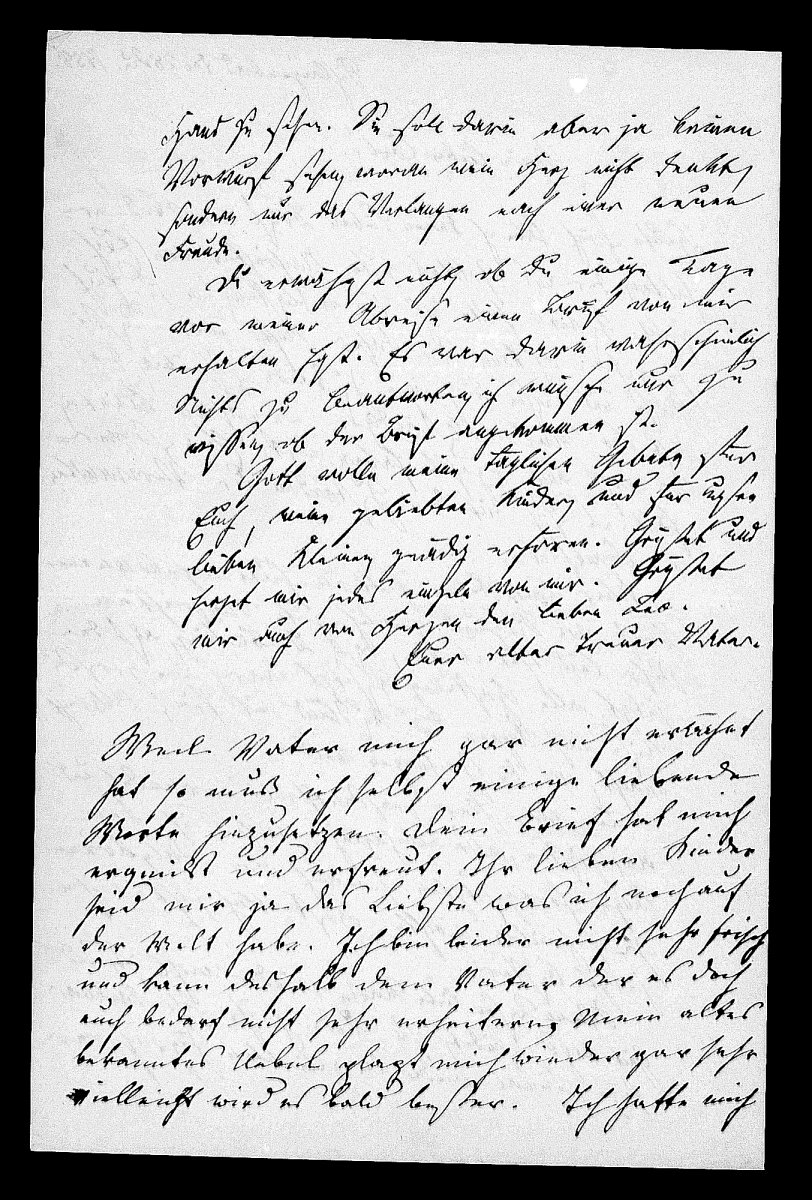 Hand zu sehen. Sie soll darin aber ja keinen
Vorwurf sehen, woran mein Herz nicht denkt,
sondern nur das Verlangen nach einer neuen
Freude.
Du erwähnst nicht, ob Du einige Tage
vor meiner Abreise einen Brief von mir
erhalten hast. Es war darin wahrscheinlich
Nichts zu beantworten, ich wünsche nur zu
wissen, ob der Brief angekommen ist.
Gott wolle meine täglichen Gebete für
Euch, meine geliebten Kinder, und für unsere
lieben Kleinen gnädig erhören. Grüßet und
herzet mir jedes einzeln von mir. Grüßet
mir auch von Herzen den lieben Leo.
Euer alter treuer Vater.
Weil Vater mich gar nicht erwähnt
hat so muß ich selbst einige liebende
Worte hinzusetzen. Dein Brief hat mich
erquickt und erfreut. Ihr lieben Kinder
seid mir ja das Liebste was ich noch auf
der Welt habe. Ich bin leider nicht sehr frisch
und kann deshalb dem Vater der es doch
auch bedarf nicht sehr erheitern, mein altes
bekanntes Uebel plagt mich wieder gar sehr
vielleicht wird es bald besser. Ich hatte mich